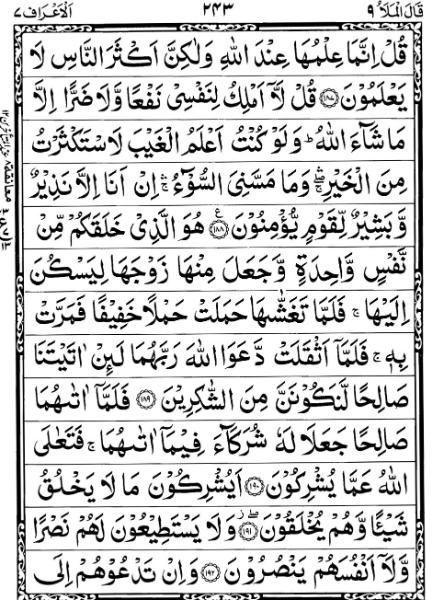 قَالَ الْمَلَاُ ٩ ٢٤٣ اَلْاَعْرَاف ٧
قُلْ اِنَّمَا عِلْمُهَا عِنْدَ اللّٰهِ وَلٰكِنَّ اَكْثَرَ النَّاسِ لَا
يَعْلَمُوْنَ ﴿١٨٧﴾ قُلْ لَّاۤ اَمْلِكُ لِنَفْسِيْ نَفْعًا وَّلَا ضَرًّا اِلَّا
مَا شَآءَ اللّٰهُ ؕ وَلَوْ كُنْتُ اَعْلَمُ الْغَيْبَ لَاسْتَكْثَرْتُ
مِنَ الْخَيْرِ ۛۖۚ وَمَا مَسَّنِيَ السُّوْٓءُ ۛۚ اِنْ اَنَا اِلَّا نَذِيْرٌ
وَّ بَشِيْرٌ لِّقَوْمٍ يُّؤْمِنُوْنَ ﴿١٨٨﴾ ع هُوَ الَّذِيْ خَلَقَكُمْ مِّنْ
نَّفْسٍ وَّاحِدَةٍ وَّجَعَلَ مِنْهَا زَوْجَهَا لِيَسْكُنَ
اِلَيْهَا ۚ فَلَمَّا تَغَشّٰىهَا حَمَلَتْ حَمْلًا خَفِيْفًا فَمَرَّتْ
بِهٖ ۚ فَلَمَّاۤ اَثْقَلَتْ دَّعَوَا اللّٰهَ رَبَّهُمَا لَىِٕنْ اٰتَيْتَنَا
صَالِحًا لَّنَكُوْنَنَّ مِنَ الشّٰكِرِيْنَ ﴿١٨٩﴾ فَلَمَّاۤ اٰتٰىهُمَا
صَالِحًا جَعَلَا لَهٗ شُرَكَآءَ فِيْمَاۤ اٰتٰىهُمَا ۚ فَتَعٰلَى
اللّٰهُ عَمَّا يُشْرِكُوْنَ ﴿١٩٠﴾ اَيُشْرِكُوْنَ مَا لَا يَخْلُقُ
شَيْـًٔا وَّهُمْ يُخْلَقُوْنَ ﴿١٩١﴾ وَلَا يَسْتَطِيْعُوْنَ لَهُمْ نَصْرًا
وَّلَاۤ اَنْفُسَهُمْ يَنْصُرُوْنَ ﴿١٩٢﴾ وَاِنْ تَدْعُوْهُمْ اِلَى
معانقة